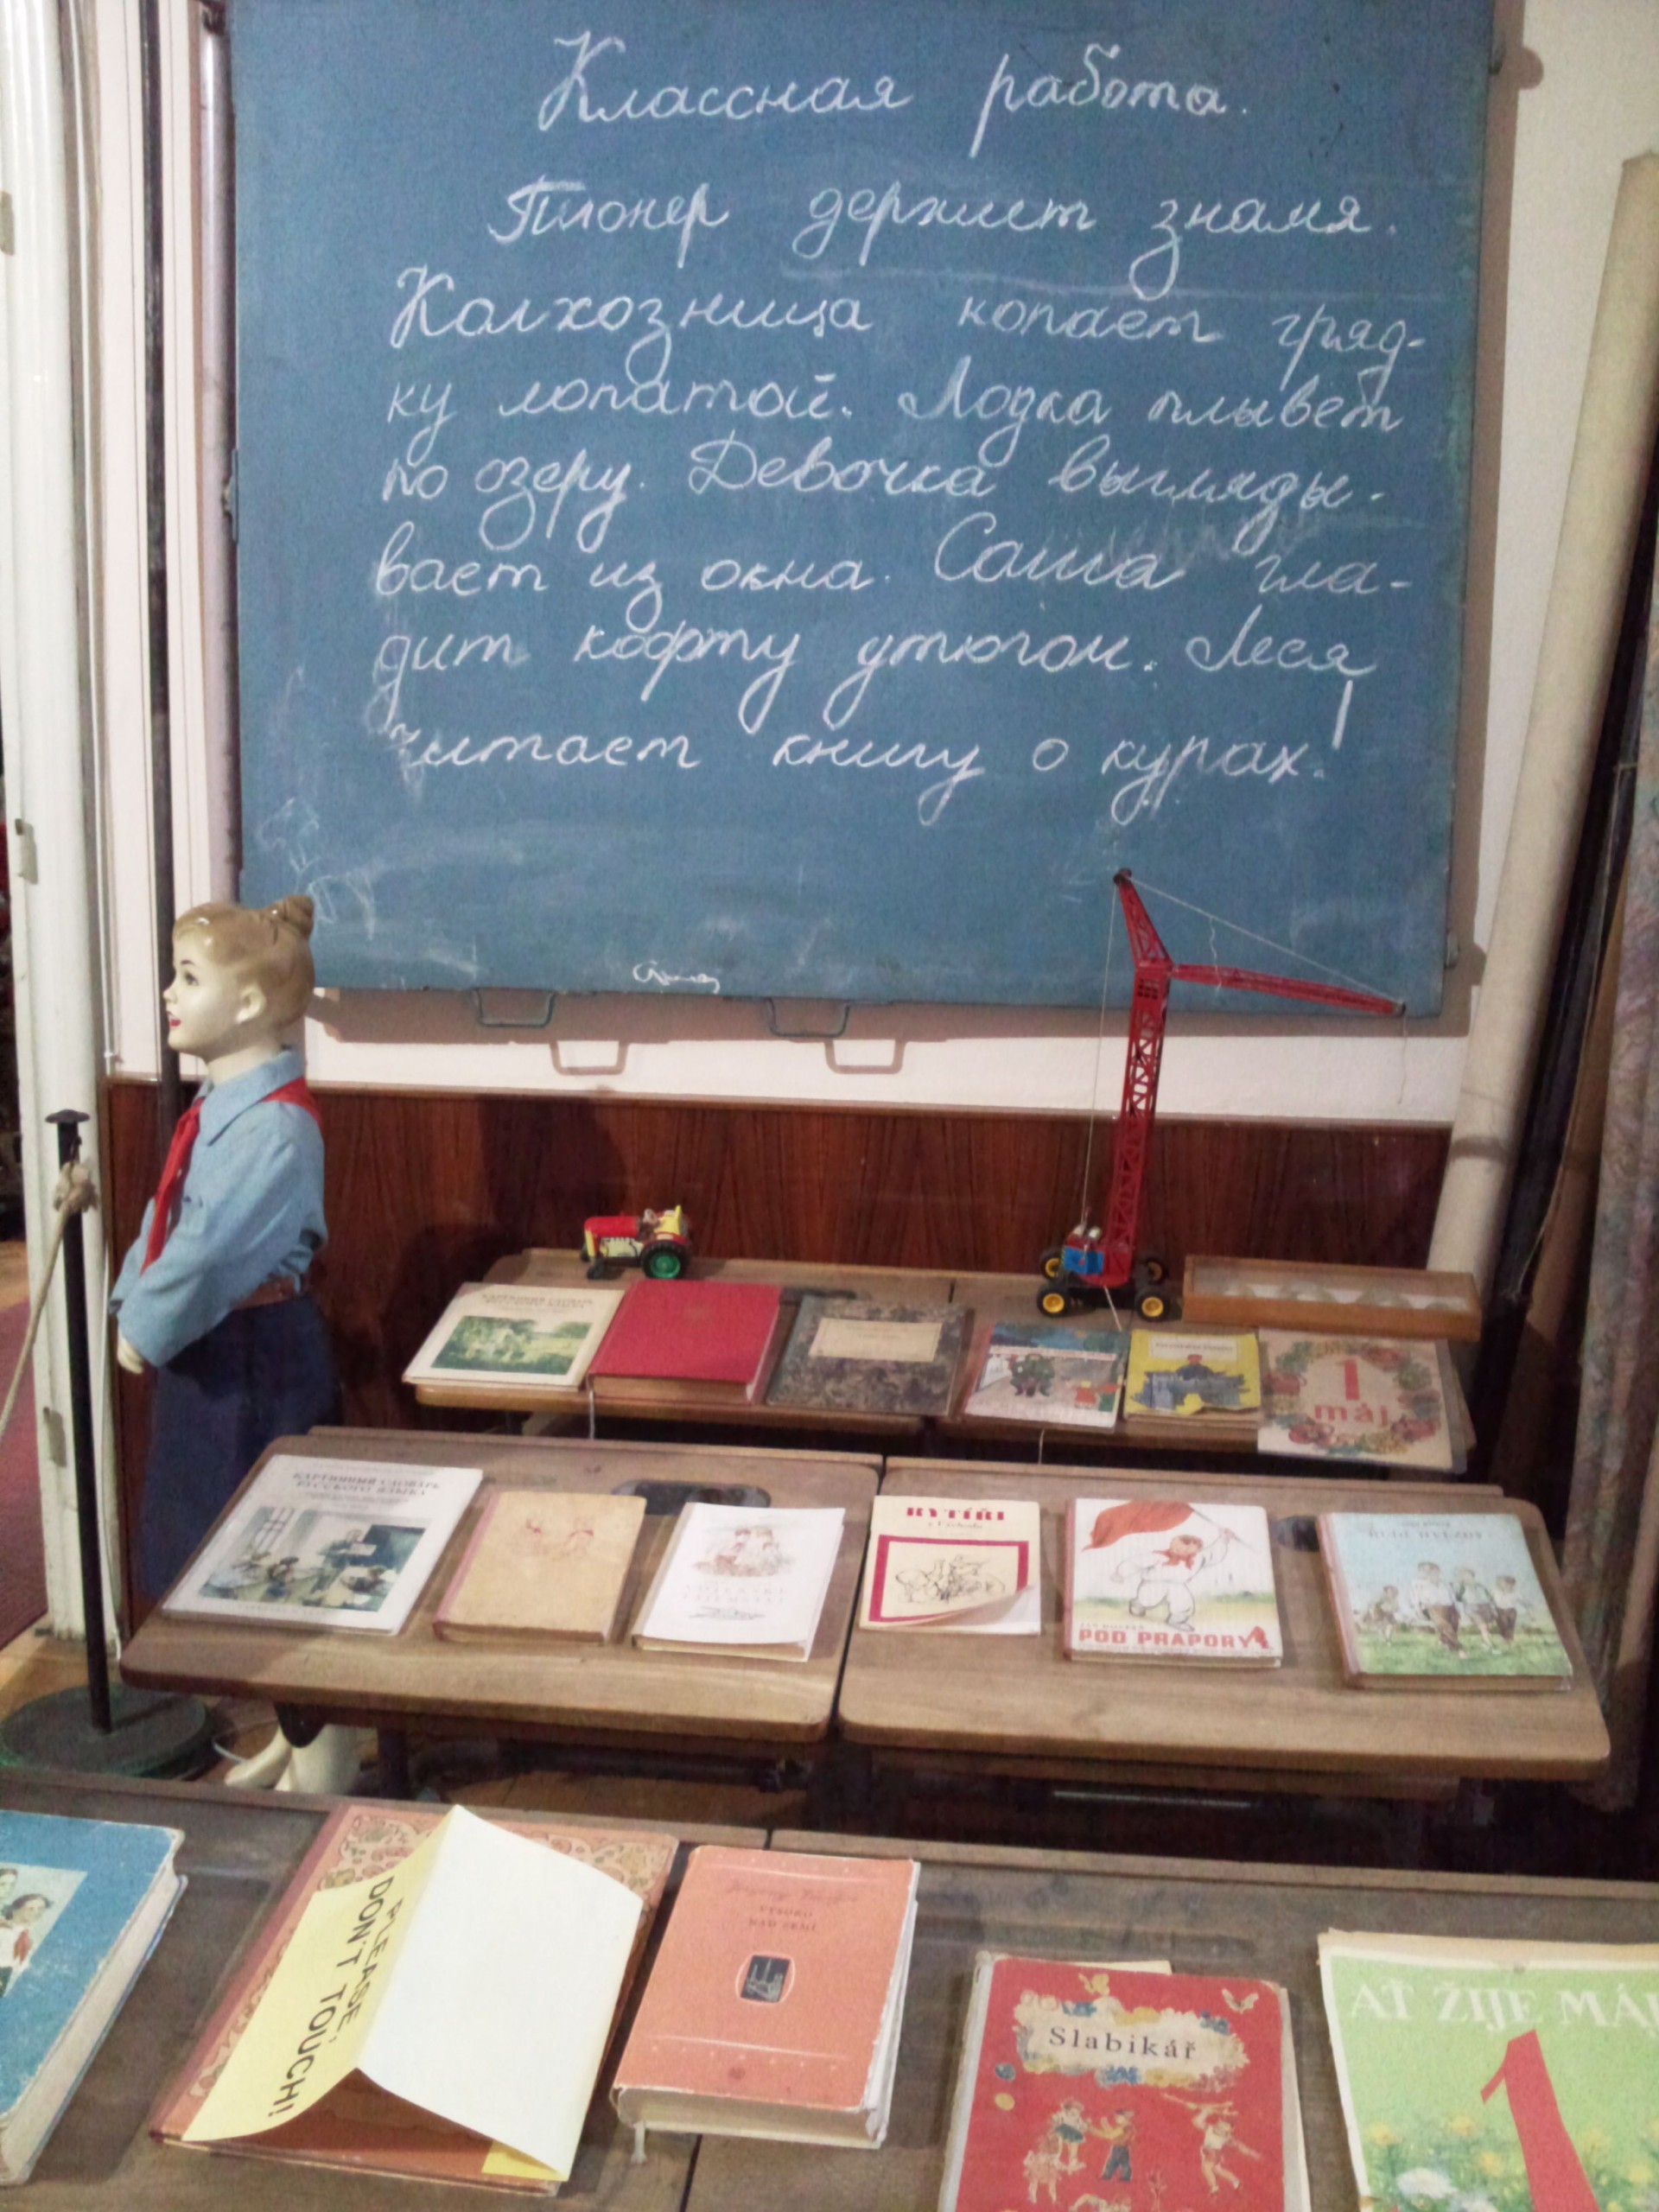 Классная работа.
Пионер держит знамя.
Колхозница копает гряд-
ку лопатой. Лодка плывет
по озеру. Девочка выгляды-
вает из окна. Саша гла-
дит кофту утюгом. Леся
читает книгу о курах!
1
máj
КАРТИННЫЙ СЛОВАРЬ
РУССКОГО ЯЗЫКА
RYTÍŘI
POD PRAPORY
RUDÉ HVĚZDY
PLEASE,
DON'T TOUCH!
VYSOKO
NAD ZEMÍ
Slabikář
AŤ ŽIJE MÁJ
1